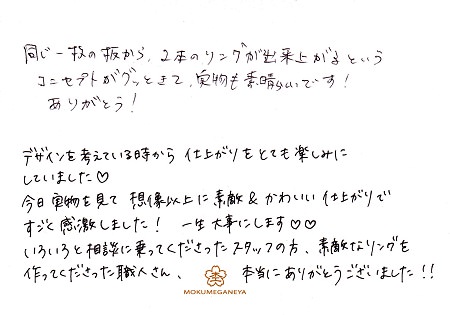 同じ一枚の板から、2本のリングが出来上がるという
コンセプトがグッときて、実物も素晴らしいです!
ありがとう!
デザインを考えている時から 仕上がりをとても楽しみに
していました♡
今日実物を見て 想像以上に素敵&かわいい仕上がりで
すごく感激しました! 一生大事にします♡♡
いろいろと相談に乗ってくださったスタッフの方、素敵なリングを
作ってくださった職人さん、 本当にありがとうございました!!
MOKUMEGANEYA